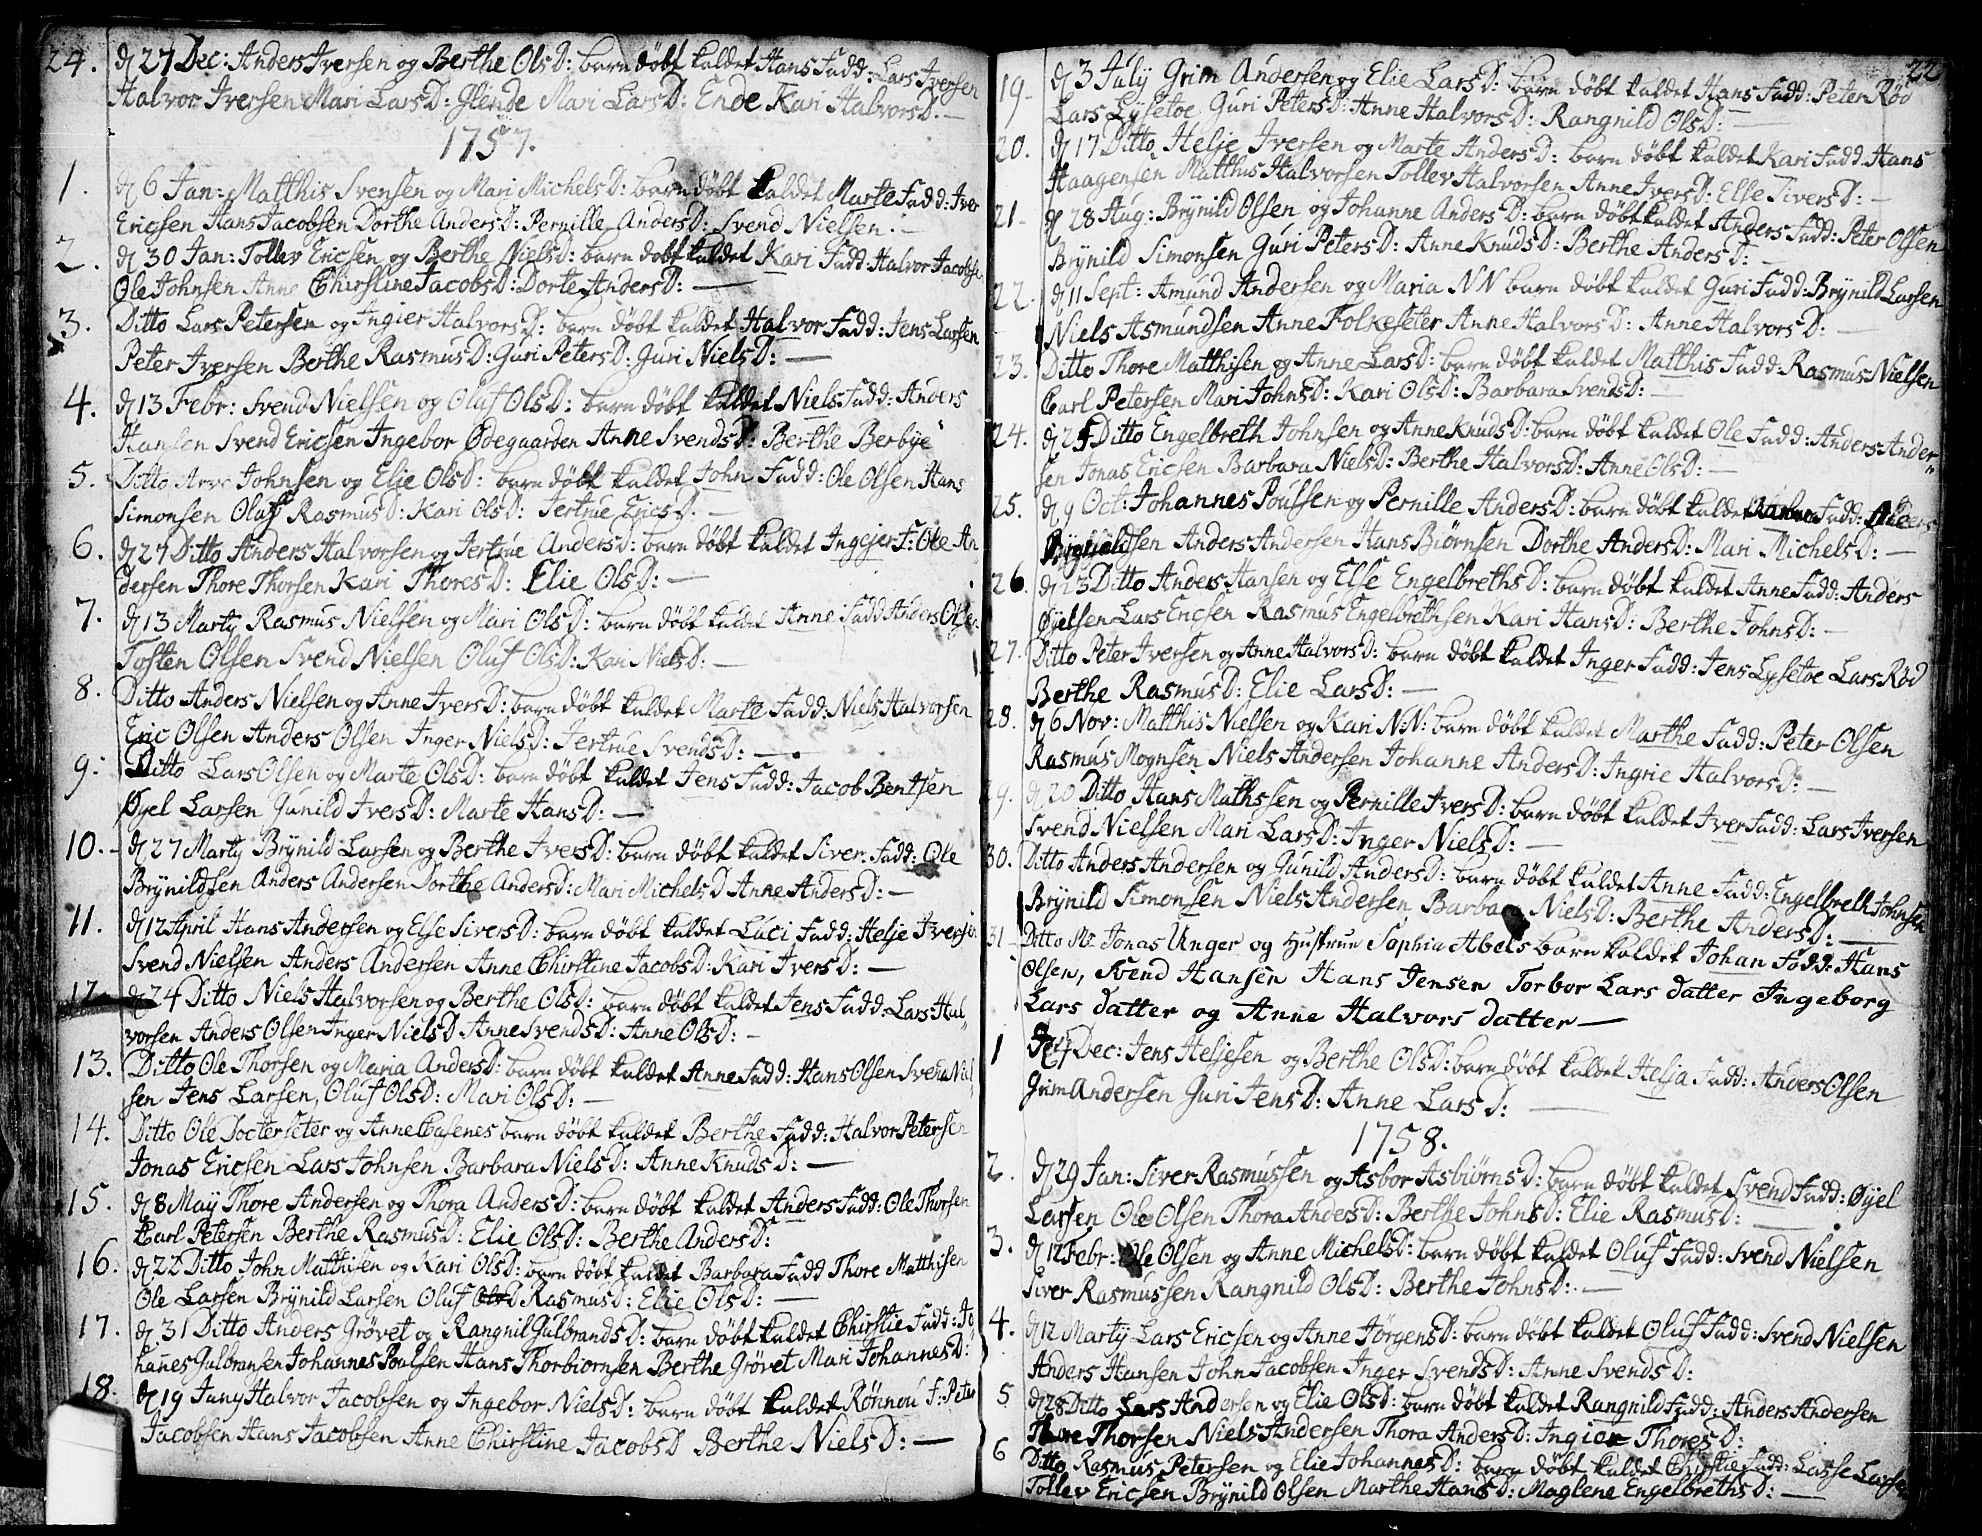 24. d 27 Dec: Anders Iversen og Berthe OlsD: barn döbt kaldet Hans Fadd: Lars Iversen
Halvor Iversen Mari LarsD: Glende Mari LarsD: Ende Kari HalvorsD. —
1757.
1. d 6 Jan: Matthis Svensen og Mari MichelsD: barn döbt kaldet Marte Fadd: Iver
Ericsen Hans Jacobsen Dorthe AndersD: Pernille AndersD: Svend Nielsen. —
2. d 30 Jan: Tollev Ericsen og Berthe NielsD: barn döbt kaldet Kari Fadd: Halvor Jacobse
Ole Johnsen Anne Chirstine JacobsD: Dorte AndersD: —
3. Ditto Lars Petersen og Ingier HalvorsD: barn döbt kaldet Halvor Fadd: Jens Larsen
Peter Iversen Berthe RasmusD: Guri PetersD: Guri NielsD: —
4. d 13 Febr: Svend Nielsen og Oluf OlsD: barn döbt kaldet Niels Fadd: Anders
Hansen Svend Ericsen Ingebor Ødegaarden Anne SvendsD: Berthe Berbÿe
5. Ditto Arve Johnsen og Elie OlsD: barn döbt kaldet John Fadd: Ole Olsen Hans
Simonsen Oluf RasmusD: Kari OlsD: Jertrue EricsD. —
6. d 27 Ditto Anders Halvorsen og Jertrue AndersD: barn döbt kaldet Ingejer F: Ole An
dersen Thore Thorsen Kari ThoresD: Elie OlsD: —
7. d 13 Marty Rasmus Nielsen og Mari OlsD: barn döbt kaldet Anne Fadd Anders Olsen
Tosten Olsen Svend Nielsen Oluf OlsD: Kari NielsD: —
8. Ditto Anders Nielsen og Anne IversD: barn döbt kaldet Marte Fadd: Niels Halvorsen
Eric Olsen Anders Olsen Inger NielsD: Jertrue SvendsD: —
9. Ditto Lars Olsen og Marte OlsD: barn döbt kaldet Jens Fadd: Jacob Bentsen
Øyel Larsen Gunild IversD: Marte HansD: —
10. d 27 Marty Brÿnild Larsen og Berthe IversD: barn döbt kaldet Siver Fadd: Ole
Brÿnildsen Anders Andersen Dorthe AndersD: Mari MichelsD Anne AndersD: —
11. d 12 April Hans Andersen og Else SiversD: barn döbt kaldet Luci Fadd: Helje Iversen
Svend Nielsen Anders Andersen Anne Chirstine JacobsD: Kari IversD: —
12. d 24 Ditto Niels Halvorsen og Berthe OlsD: barn döbt kaldet Jens Fadd: Lars Hal
vorsen Anders Olsen Inger NielsD Anne SvendsD: Anne OlsD: —
13. Ditto Ole Thorsen og Maria AndersD: barn döbt kaldet Anne Fadd: Hans Olsen Svend Niel
sen Jens Larsen, Oluf OlsD: Mari OlsD: —
14. Ditto Ole Tocterseter og Anne barn döbt kaldet Berthe Fadd: Halvor Petersen
Jonas Ericsen Lars Johnsen Barbara NielsD: Anne KnudsD: —
15. d 8 Maÿ Thore Andersen og Thora AndersD: barn döbt kaldet Anders Fadd: Ole Thorsen
Carl Petersen Berthe RasmusD: Elie OlsD: Berthe AndersD:
16. d 22 Ditto John Matthisen og Kari OlsD: barn döbt kaldet Barbara Fadd Thore Matthisen
Ole Larsen Brÿnild Larsen Oluf RasmusD: Elie OlsD: —
17. d 31 Ditto Anders Grövet og Rangnil GulbrandsD: barn döbt kaldet Chirstie Fadd: Jo
hañes Gulbransen Johannes Poulsen Hans Thorbiornsen Berthe Grövet Mari JohannesD:
18. d 19 Juny Halvor Jacobsen og Ingebor NielsD: barn döbt kaldet Rönnou F: Peter
Jacobsen Hans Jacobsen Anne Chirstine JacobsD Berthe NielsD: —
22
19. d 3 Julÿ Grim Andersen og Elie LarsD: barn döbt kaldet Hans Fadd: Peter Röd
Lars Lÿsetoe Guri PetersD: Anne HalvorsD: Rangnild OlsD: —
20. d 17 Ditto Helje Iversen og Marte AndersD: barn döbt kaldet Kari Fadd: Hans
Haagensen Matthis Halvorsen Tollev Halvorsen Anne IversD: Else SiversD: —
21. d 28 Aug: Brÿnild Olsen og Johanne AndersD: barn döbt kaldet Anders Fadd: Peter Olsen
Brÿnild Simonsen Guri PetersD: Anne KnudsD: Berthe AndersD: —
22. d 11 Sept: Amund Andersen og Maria NN barn döbt kaldet Guri Fadd: Brÿnild Larsen
Niels Asmundsen Anne Folkeseter Anne HalvorsD: Anne HalvorsD: —
23. Ditto Thore Matthisen og Anne LarsD: barn döbt kaldet Matthis Fadd: Rasmus Nielsen
Carl Petersen Mari JohnsD: Kari OlsD: Barbara SvendsD: —
24. d 25 Ditto Engelbreth Johnsen og Anne KnudsD: barn döbt kaldet Ole Fadd: Anders Ander
sen Jonas Ericsen Barbara NielsD: Berthe HalvorsD: Anne OlsD: —
25. d 9 Oct: Johannes Poulsen og Pernille AndersD: barn döbt kaldet Fadd:
Anders Andersen Hans Biörnsen Dorthe AndersD: Mari MichelsD: —
26. d 23 Ditto Anders Hansen og Else EngelbrethsD: barn döbt kaldet Anne Fadd: Anders
Øÿelsen Lars Ericsen Rasmus Engelbrethsen Kari HansD: Berthe JohnsD: —
27. Ditto Peter Iversen og Anne HalvorsD: barn döbt kaldet Inger Fadd: Jens Lÿsetoe Lars Röd
Berthe RasmusD: Elie LarsD: —
28. d 6 Nov: Matthis Nielsen og Kari N:N: barn döbt kaldet Marthe Fadd: Peter Olsen
Rasmus Mognsen Niels Andersen Johanne AndersD: Ingrie HalvorsD: —
29. d 20 Ditto Hans Mathssen og Pernille IversD: barn döbt kaldet Iver Fadd: Lars Iversen
Svend Nielsen Mari LarsD: Inger NielsD: —
30. Ditto Anders Andersen og Gunild AndersD: barn döbt kaldet Anne Fadd: Engelbreth Johnsen
Brÿnild Simonsen Niels Andersen Barbara NielsD: Berthe AndersD: —
31 Ditto Jonas Unger og Hustrue Sophia Abels barn kaldet Johan Fadd: Hans
Olsen, Svend Hansen Hans Jensen Torbor Lars datter Ingeborg
Lars datter og Anne Halvors datter —
1 Dec: Jens Heljesen og Berthe OlsD: barn döbt kaldet Helja Fadd: Anders Olsen
Grim Andersen Guri JensD: Anne LarsD: —
1758.
2. d 29 Jan: Siver Rasmussen og Asbor AsbiörnsD: barn döbt kaldet Svend Fadd: Øÿel
Larsen Ole Olsen Thora AndersD: Berthe JohnsD: Elie RasmusD: —
3. d 12 Febr: Ole Olsen og Anne MichelsD: barn döbt kaldet Oluf Fadd: Svend Nielsen
Siver Rasmussen Rangnild OlsD: Berthe JohnsD: —
4. d 12 Martÿ Lars Ericsen og Anne JörgensD: barn döbt kaldet Oluf Fadd: Svend Nielsen
Anders Hansen John Jacobsen Inger SvendsD: Anne SvendsD:
5 d 28 Ditto Lars Andersen og Elie OlsD: barn döbt kaldet Rangnild Fadd: Anders Andersen
Thore Thorsen Niels Andersen Thora AndersD: Ingier ThoresD:
6 Ditto Rasmus Petersen og Elie JohannesD: barn döbt kaldet Chirstie Fadd: Lasse Larse
Tollev Ericsen Brÿnild Olsen Marthe HansD: Maglene EngelbrethsD: —